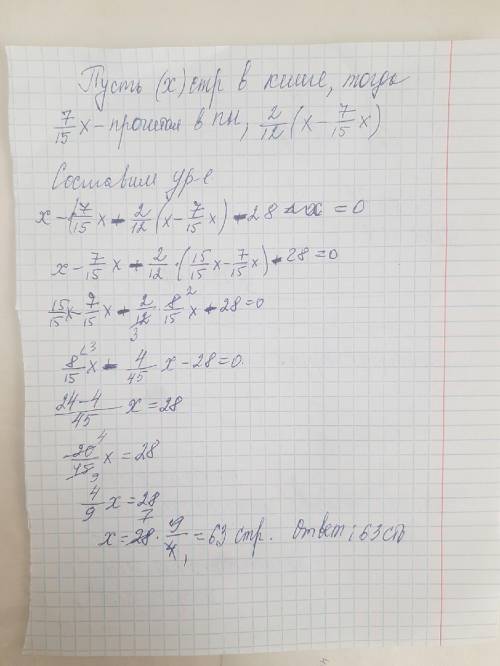 Пусть (x) стр в книге, тогда
7/15 x - прочитал в пн, 2/12 (x - 7/15 x)
Составим ур-е
x - (7/15 x - 2/12 (x - 7/15 x) - 28 = 0
x - 7/15 x - 2/12 · (15/15 x - 7/15 x) - 28 = 0
15/15 x - 7/15 x - 2/12 · 8/15 x - 28 = 0
8/15 x - 4/45 x - 28 = 0.
24-4/45 x = 28
20/45 x = 28
4/9 x = 28
x = 28 · 9/4 = 63 стр. Ответ: 63 ст